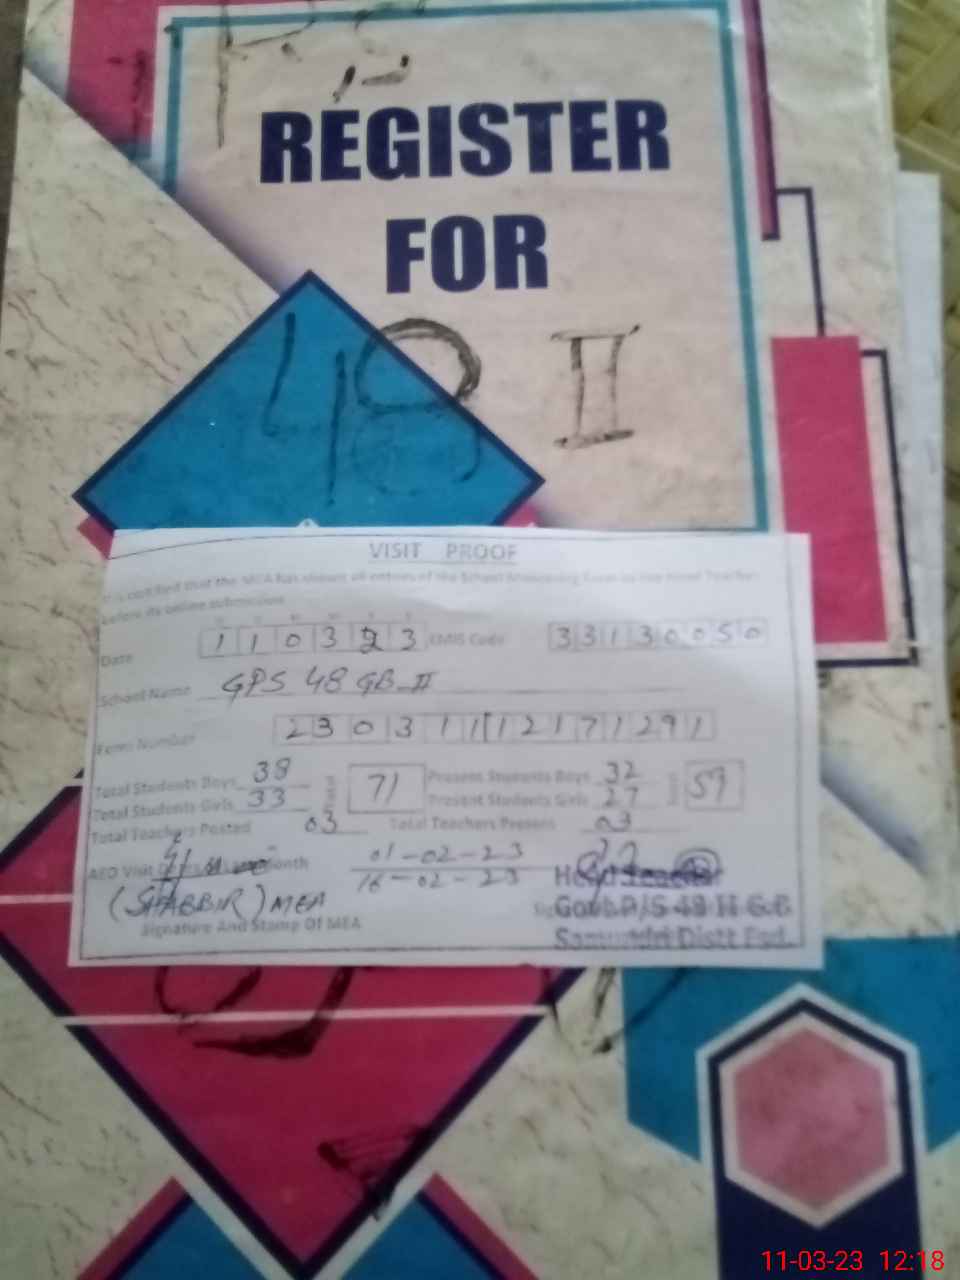 REGISTER
FOR
48 II
VISIT PROOF
It is certified that the MEA has shown all entries of the School Monitoring Form to the Head Teacher
before its online submission
Date 110323 EMIS Code 33130050
School Name GPS 48 GB-II
Form Number 23031112171291
Total Students Boys 38 71 Present Students Boys 32 59
Total Students Girls 33 Present Students Girls 27
Total Teachers Posted 03 Total Teachers Present 03
AEO Visit Month 01-02-23
16-02-23
Head Teacher
(SHABBIR) MEA
Govt. P/S 48 II G.B
Signature And Stamp Of MEA
Samundri Distt Fsd.
11-03-23 12:18